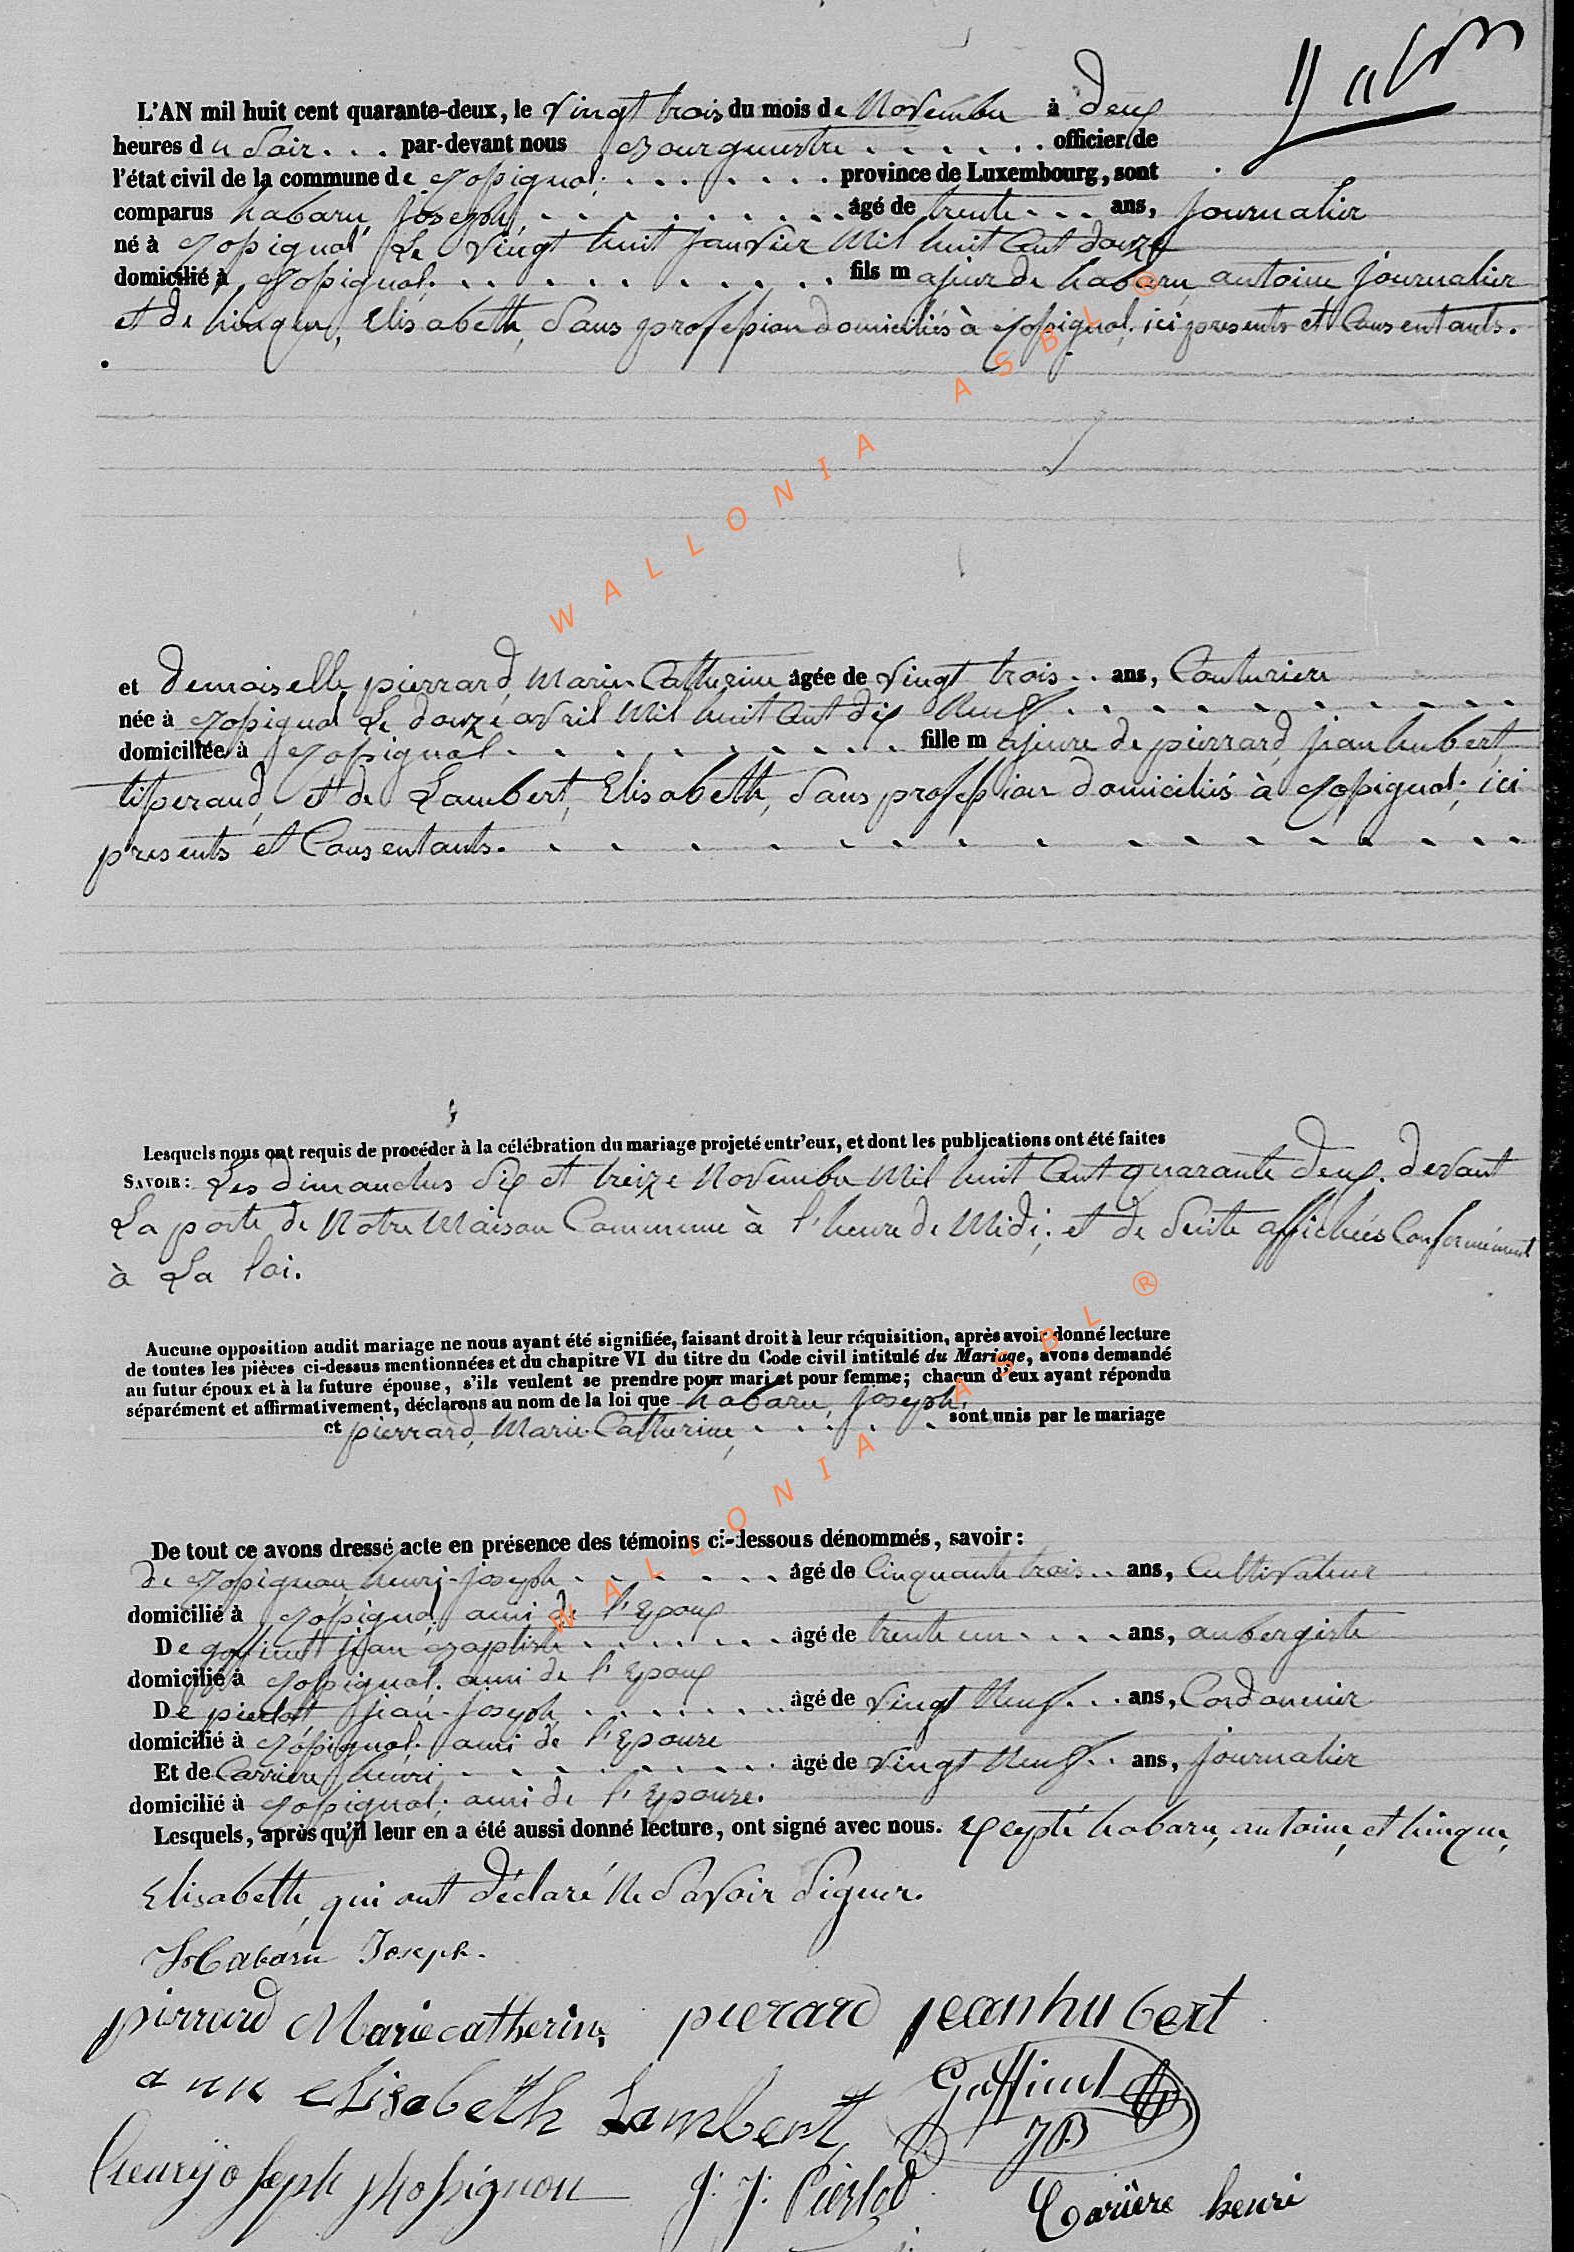 L'AN mil huit cent quarante-deux, le vingt trois du mois de Novembre à deux
heures du Soir. . . par-devant nous Bourguestre . . . . . . officier de
l'état civil de la commune de . . . . . . . province de Luxembourg, sont
comparus habaru, Joseph, . . . . . . . . . âgé de trente . . . ans, journalier
né à Le vingt huit janvier Mil huit Cent douze
domicilié à . . . . . . . . fils majeur de habaru, antoine journalier
et de hinque, Elisabeth, Sans profession domiciliés à ici presents et Consentants.
et demoiselle pierrard, Marie-Catherine âgée de vingt trois . . ans, Couturiere
née à Le douze avril Mil huit Cent dix Neuf . . . . . . . .
domiciliée à . . . . . . . . fille majeure de pierrard, jean hubert,
tisserand, et de Lambert, Elisabeth, Sans profession domiciliés à ici
presents et Consentants. . . . . . . . . . . . .
Lesquels nous ont requis de procéder à la célébration du mariage projeté entr'eux, et dont les publications ont été faites
SAVOIR: Les dimanches Six et treize Novembre Mil huit Cent quarante deux. devant
La porte de Notre Maison Commune à l'heure de Midi; et de Suite affichées Conformément
à La loi.
Aucune opposition audit mariage ne nous ayant été signifiée, faisant droit à leur réquisition, après avoir donné lecture
de toutes les pièces ci-dessus mentionnées et du chapitre VI du titre du Code civil intitulé du Mariage, avons demandé
au futur époux et à la future épouse, s'ils veulent se prendre pour mari et pour femme; chacun d'eux ayant répondu
séparément et affirmativement, déclarons au nom de la loi que habaru, Joseph,
et pierrard, Marie-Catherine, . . . . . . sont unis par le mariage
De tout ce avons dressé acte en présence des témoins ci-dessous dénommés, savoir:
de henri-joseph . . . . . . . âgé de Cinquante trois . . ans, Cultivateur
domicilié à ami de l'Epoux
De goffinet jean baptiste . . . . . . . âgé de trente un . . . . ans, aubergiste
domicilié à ami de l'Epoux
De pierlot jean-joseph . . . . . . . âgé de vingt Neuf . . . ans, Cordonnier
domicilié à ami de l'Epouse
Et de Carriere henri . . . . . . . . . âgé de vingt Neuf . . ans, journalier
domicilié à ami de l'Epouse.
Lesquels, après qu'il leur en a été aussi donné lecture, ont signé avec nous. Excepté habaru, antoine, et hinque,
Elisabeth, qui ont déclaré Ne Savoir Signer.
Habaru Joseph.
pierrard Marie catherine pierard jeanhubert
ann elisabeth Lambert Goffinet
JB
henrij joseph J: J: Pierlod Carüere henri
WALLONIA ASBL ®
WALLONIA ASBL ®